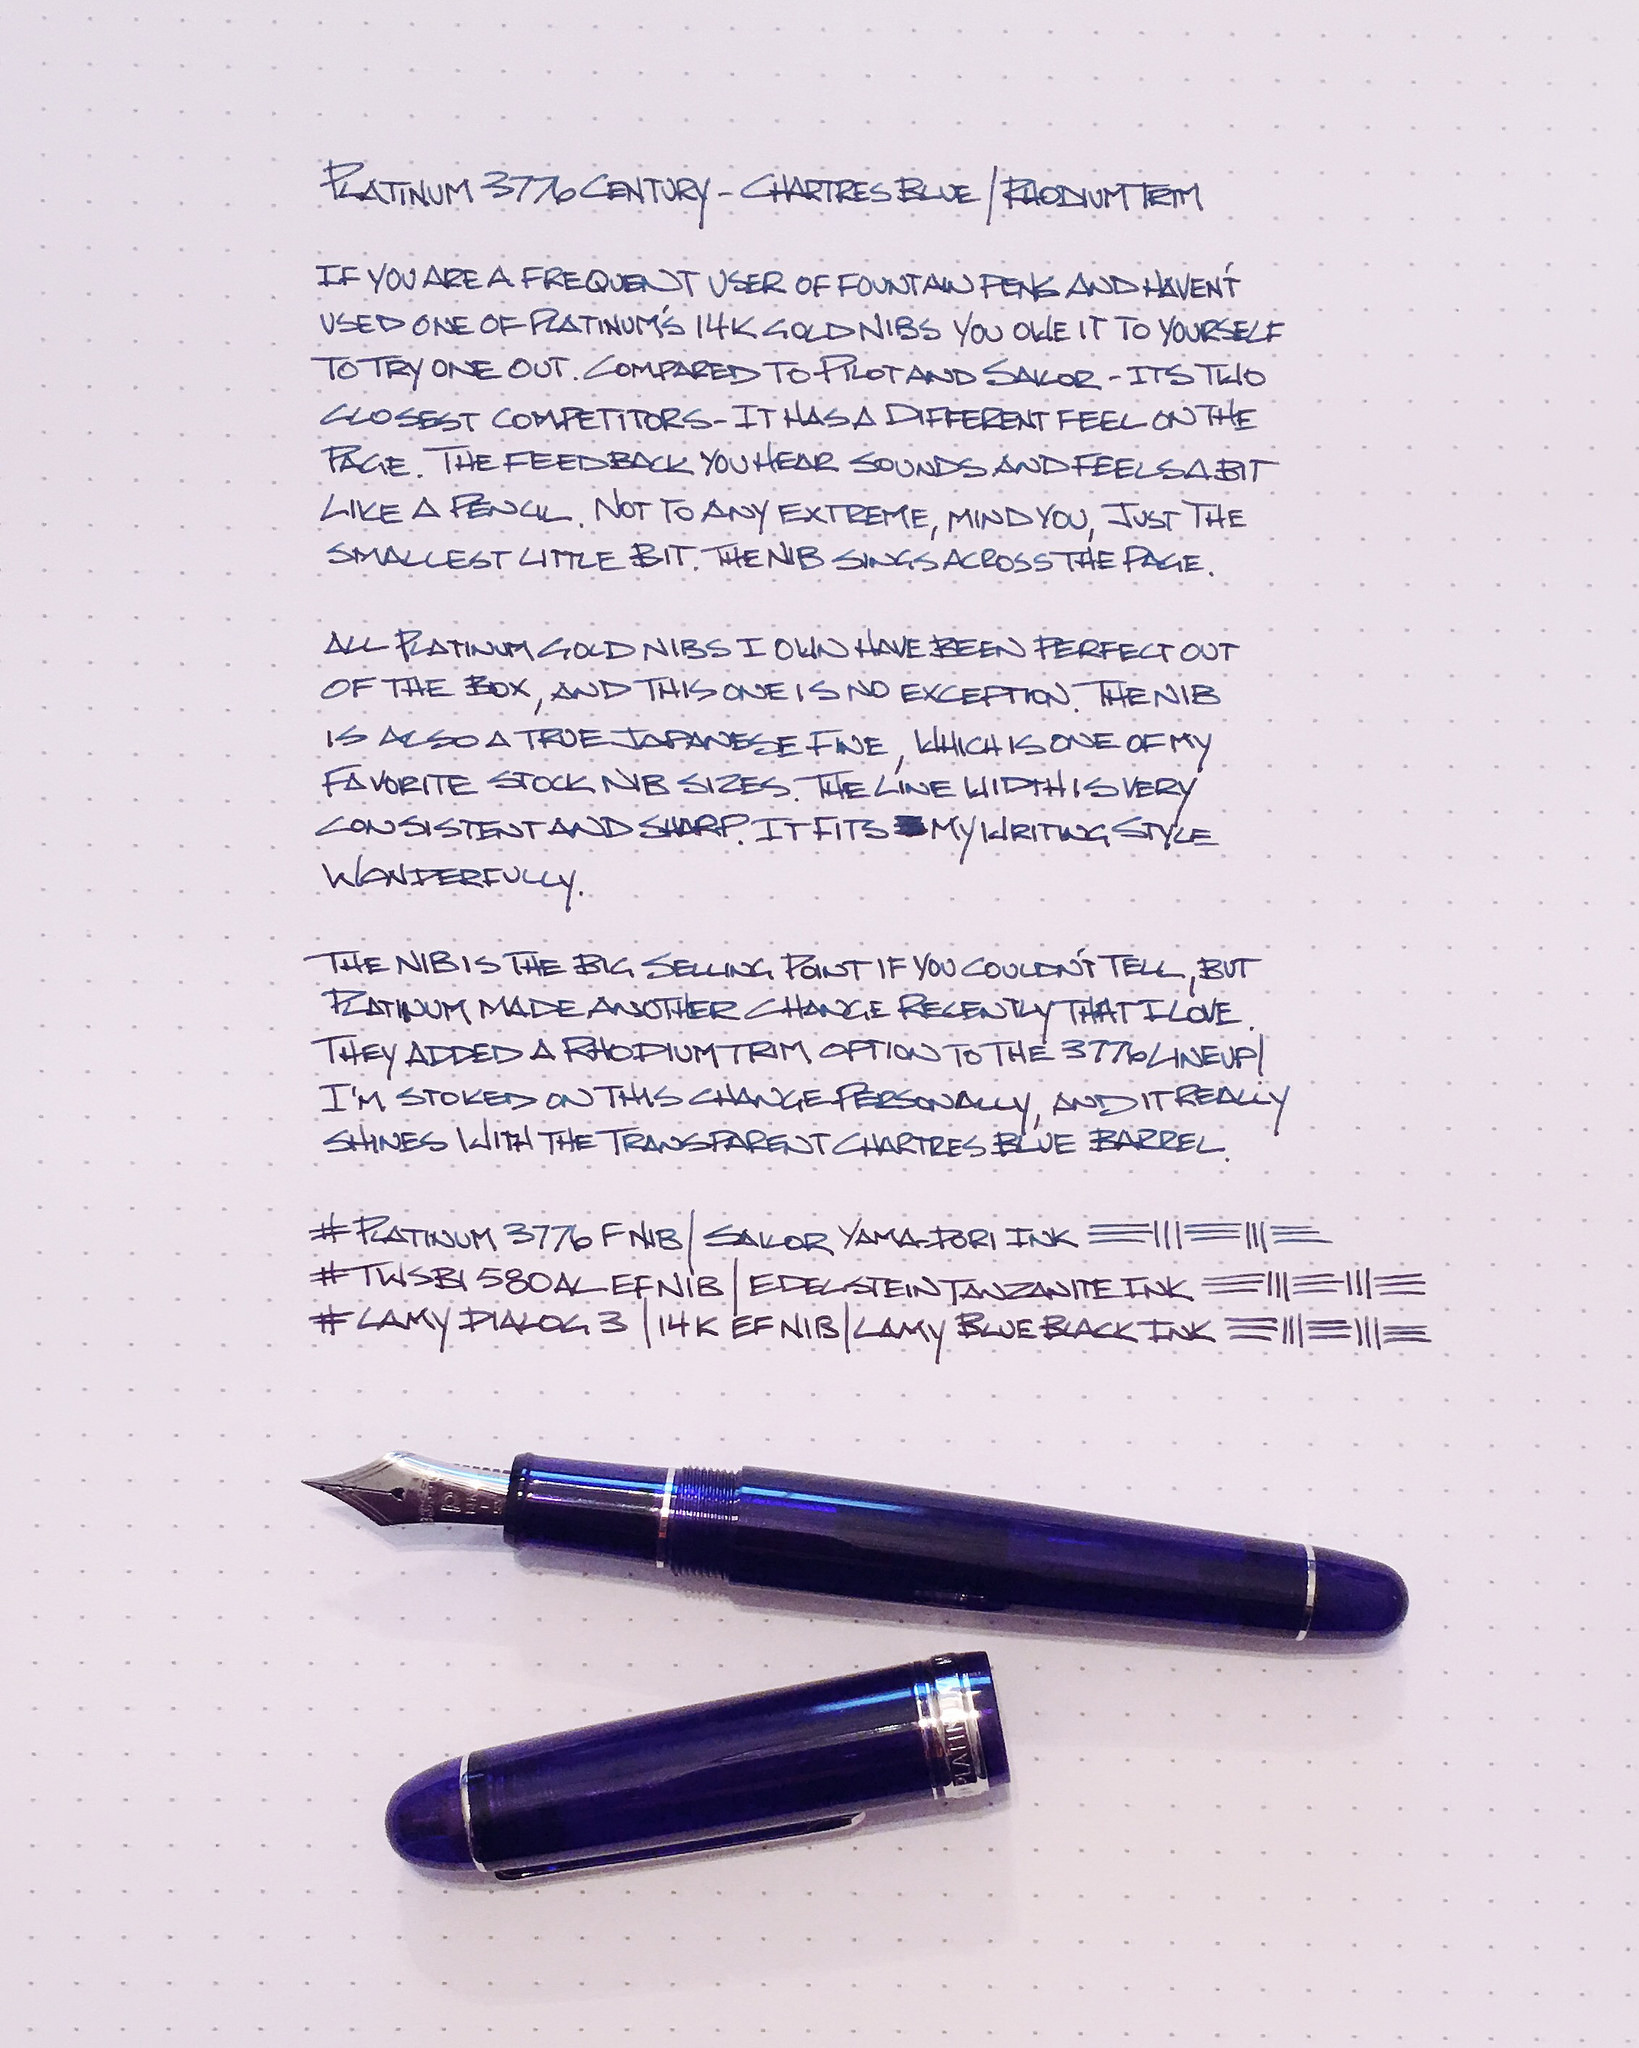 PLATINUM 3776 CENTURY - CHARTRES BLUE / RHODIUM TRIM
IF YOU ARE A FREQUENT USER OF FOUNTAIN PENS AND HAVEN'T
USED ONE OF PLATINUM'S 14K GOLD NIBS YOU OWE IT TO YOURSELF
TO TRY ONE OUT. COMPARED TO PILOT AND SAILOR - ITS TWO
CLOSEST COMPETITORS - IT HAS A DIFFERENT FEEL ON THE
PAGE. THE FEEDBACK YOU HEAR SOUNDS AND FEELS A BIT
LIKE A PENCIL. NOT TO ANY EXTREME, MIND YOU, JUST THE
SMALLEST LITTLE BIT. THE NIB SINGS ACROSS THE PAGE.
ALL PLATINUM GOLD NIBS I OWN HAVE BEEN PERFECT OUT
OF THE BOX, AND THIS ONE IS NO EXCEPTION. THE NIB
IS ALSO A TRUE JAPANESE FINE, WHICH IS ONE OF MY
FAVORITE STOCK NIB SIZES. THE LINE WIDTH IS VERY
CONSISTENT AND SHARP. IT FITS MY WRITING STYLE
WONDERFULLY.
THE NIB IS THE BIG SELLING POINT IF YOU COULDN'T TELL, BUT
PLATINUM MADE ANOTHER CHANGE RECENTLY THAT I LOVE.
THEY ADDED A RHODIUM TRIM OPTION TO THE 3776 LINEUP/
I'M STOKED ON THIS CHANGE PERSONALLY, AND IT REALLY
SHINES WITH THE TRANSPARENT CHARTRES BLUE BARREL.
# PLATINUM 3776 F NIB / SAILOR YAMA-DORI INK
# TWSBI 580AL EF NIB / EDELSTEIN TANZANITE INK
# LAMY DIALOG 3 / 14K EF NIB / LAMY BLUE BLACK INK
PLATINUM